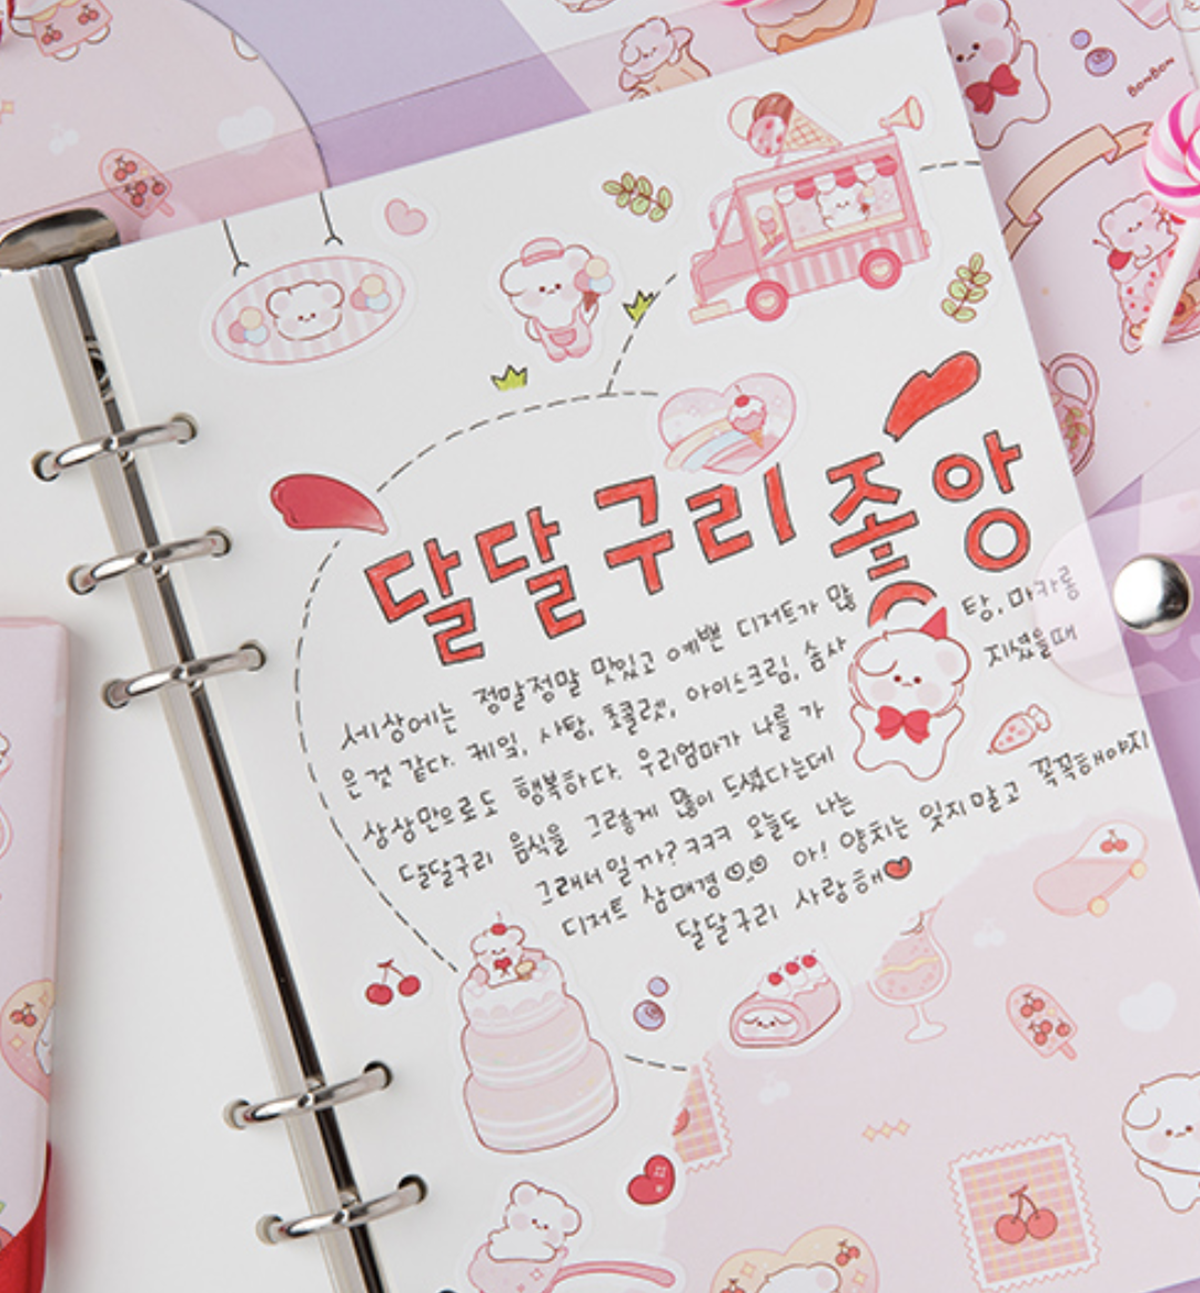 BonBon
달달구리 좋앙
세상에는 정말정말 맛있고 예쁜 디저트가 많
은 것 같다. 케잌, 사탕, 초콜렛, 아이스크림, 솜사탕, 마카롱
상상만으로도 행복하다. 우리엄마가 나를 가지셨을때
달달구리 음식을 그렇게 많이 드셨다는데
그래서일까? ㅋㅋㅋ 오늘도 나는
디저트 삼매경 아! 양치는 잊지말고 꼭꼭해야지
달달구리 사랑해♥